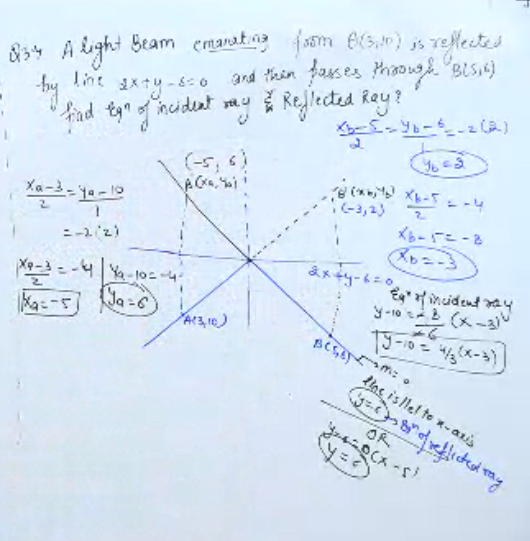 Q34 A light Beam emanating from A(3,10) is reflected
by line 2x+y-6=0 and then passes through B(5,6)
find Eqn of incident ray & Reflected Ray?
xb-5/2 = yb-6/1 = -2(2)
yb=2
(-5, 6)
A'(xa, ya)
xa-3/2 = ya-10/1
= -2(2)
B'(xb, yb)
(-3,2)
xb-5/2 = -4
xb-5 = -8
xb=-3
xa-3/2 = -4
xa=-5
ya-10=-4
ya=6
2x+y-6=0
A(3,10)
B(5,6)
Eqn of incident ray
y-10 = -8/-6 (x-3)
y-10 = 4/3(x-3)
m=0
line is llel to x-axis
y=6 → Eqn of reflected ray
OR
y-6=0(x-5)
y=6